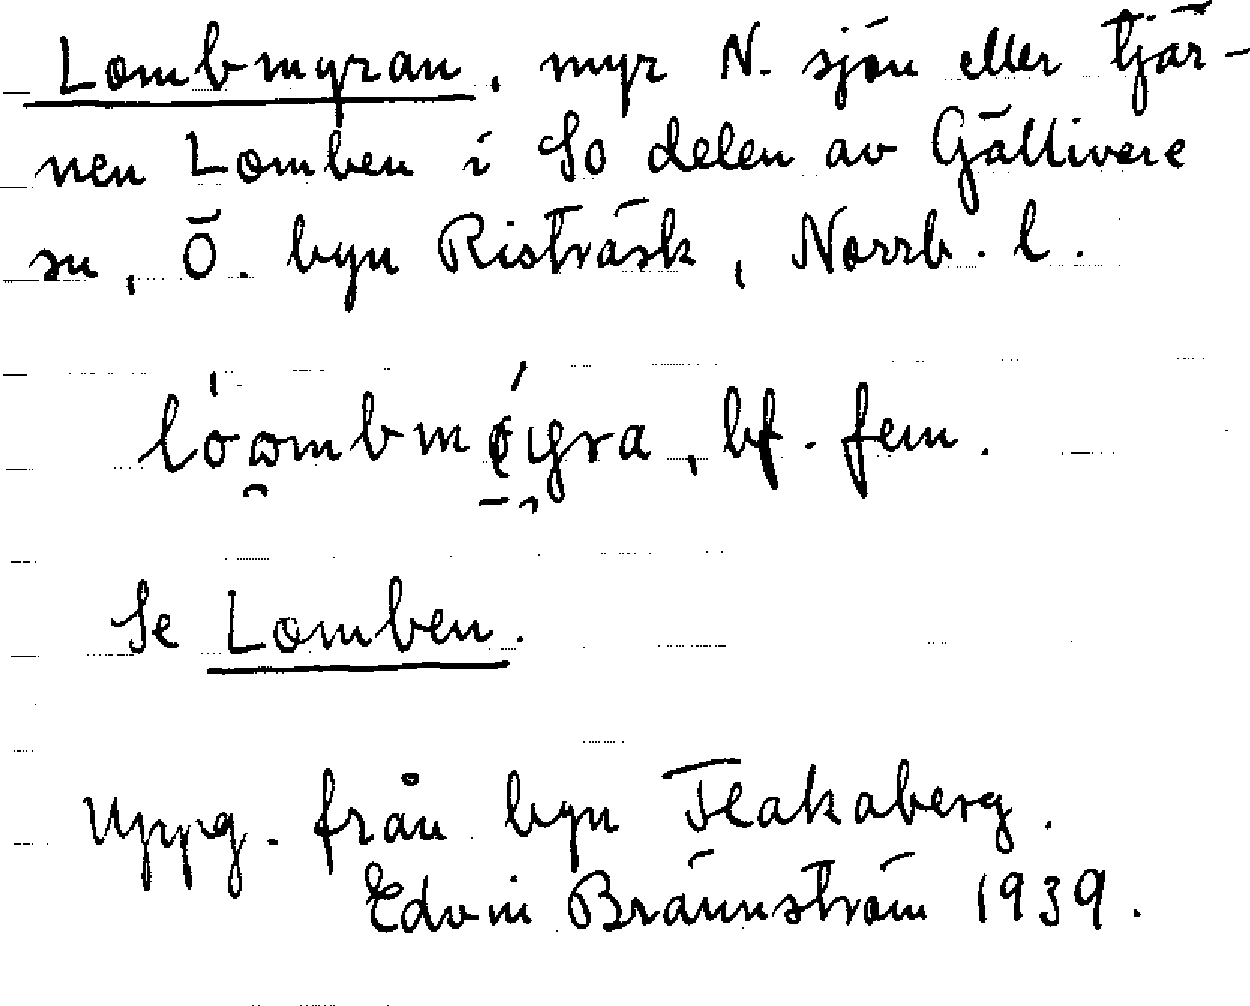 Lombmyran, myr N. sjön eller tjär-
nen Lomben i So delen av Gällivere
sn, Ö. byn Risträsk, Norrb. l.
bf. fem.
Se Lomben.
Uppg. från byn Flakaberg.
Edvin Brännström 1939.